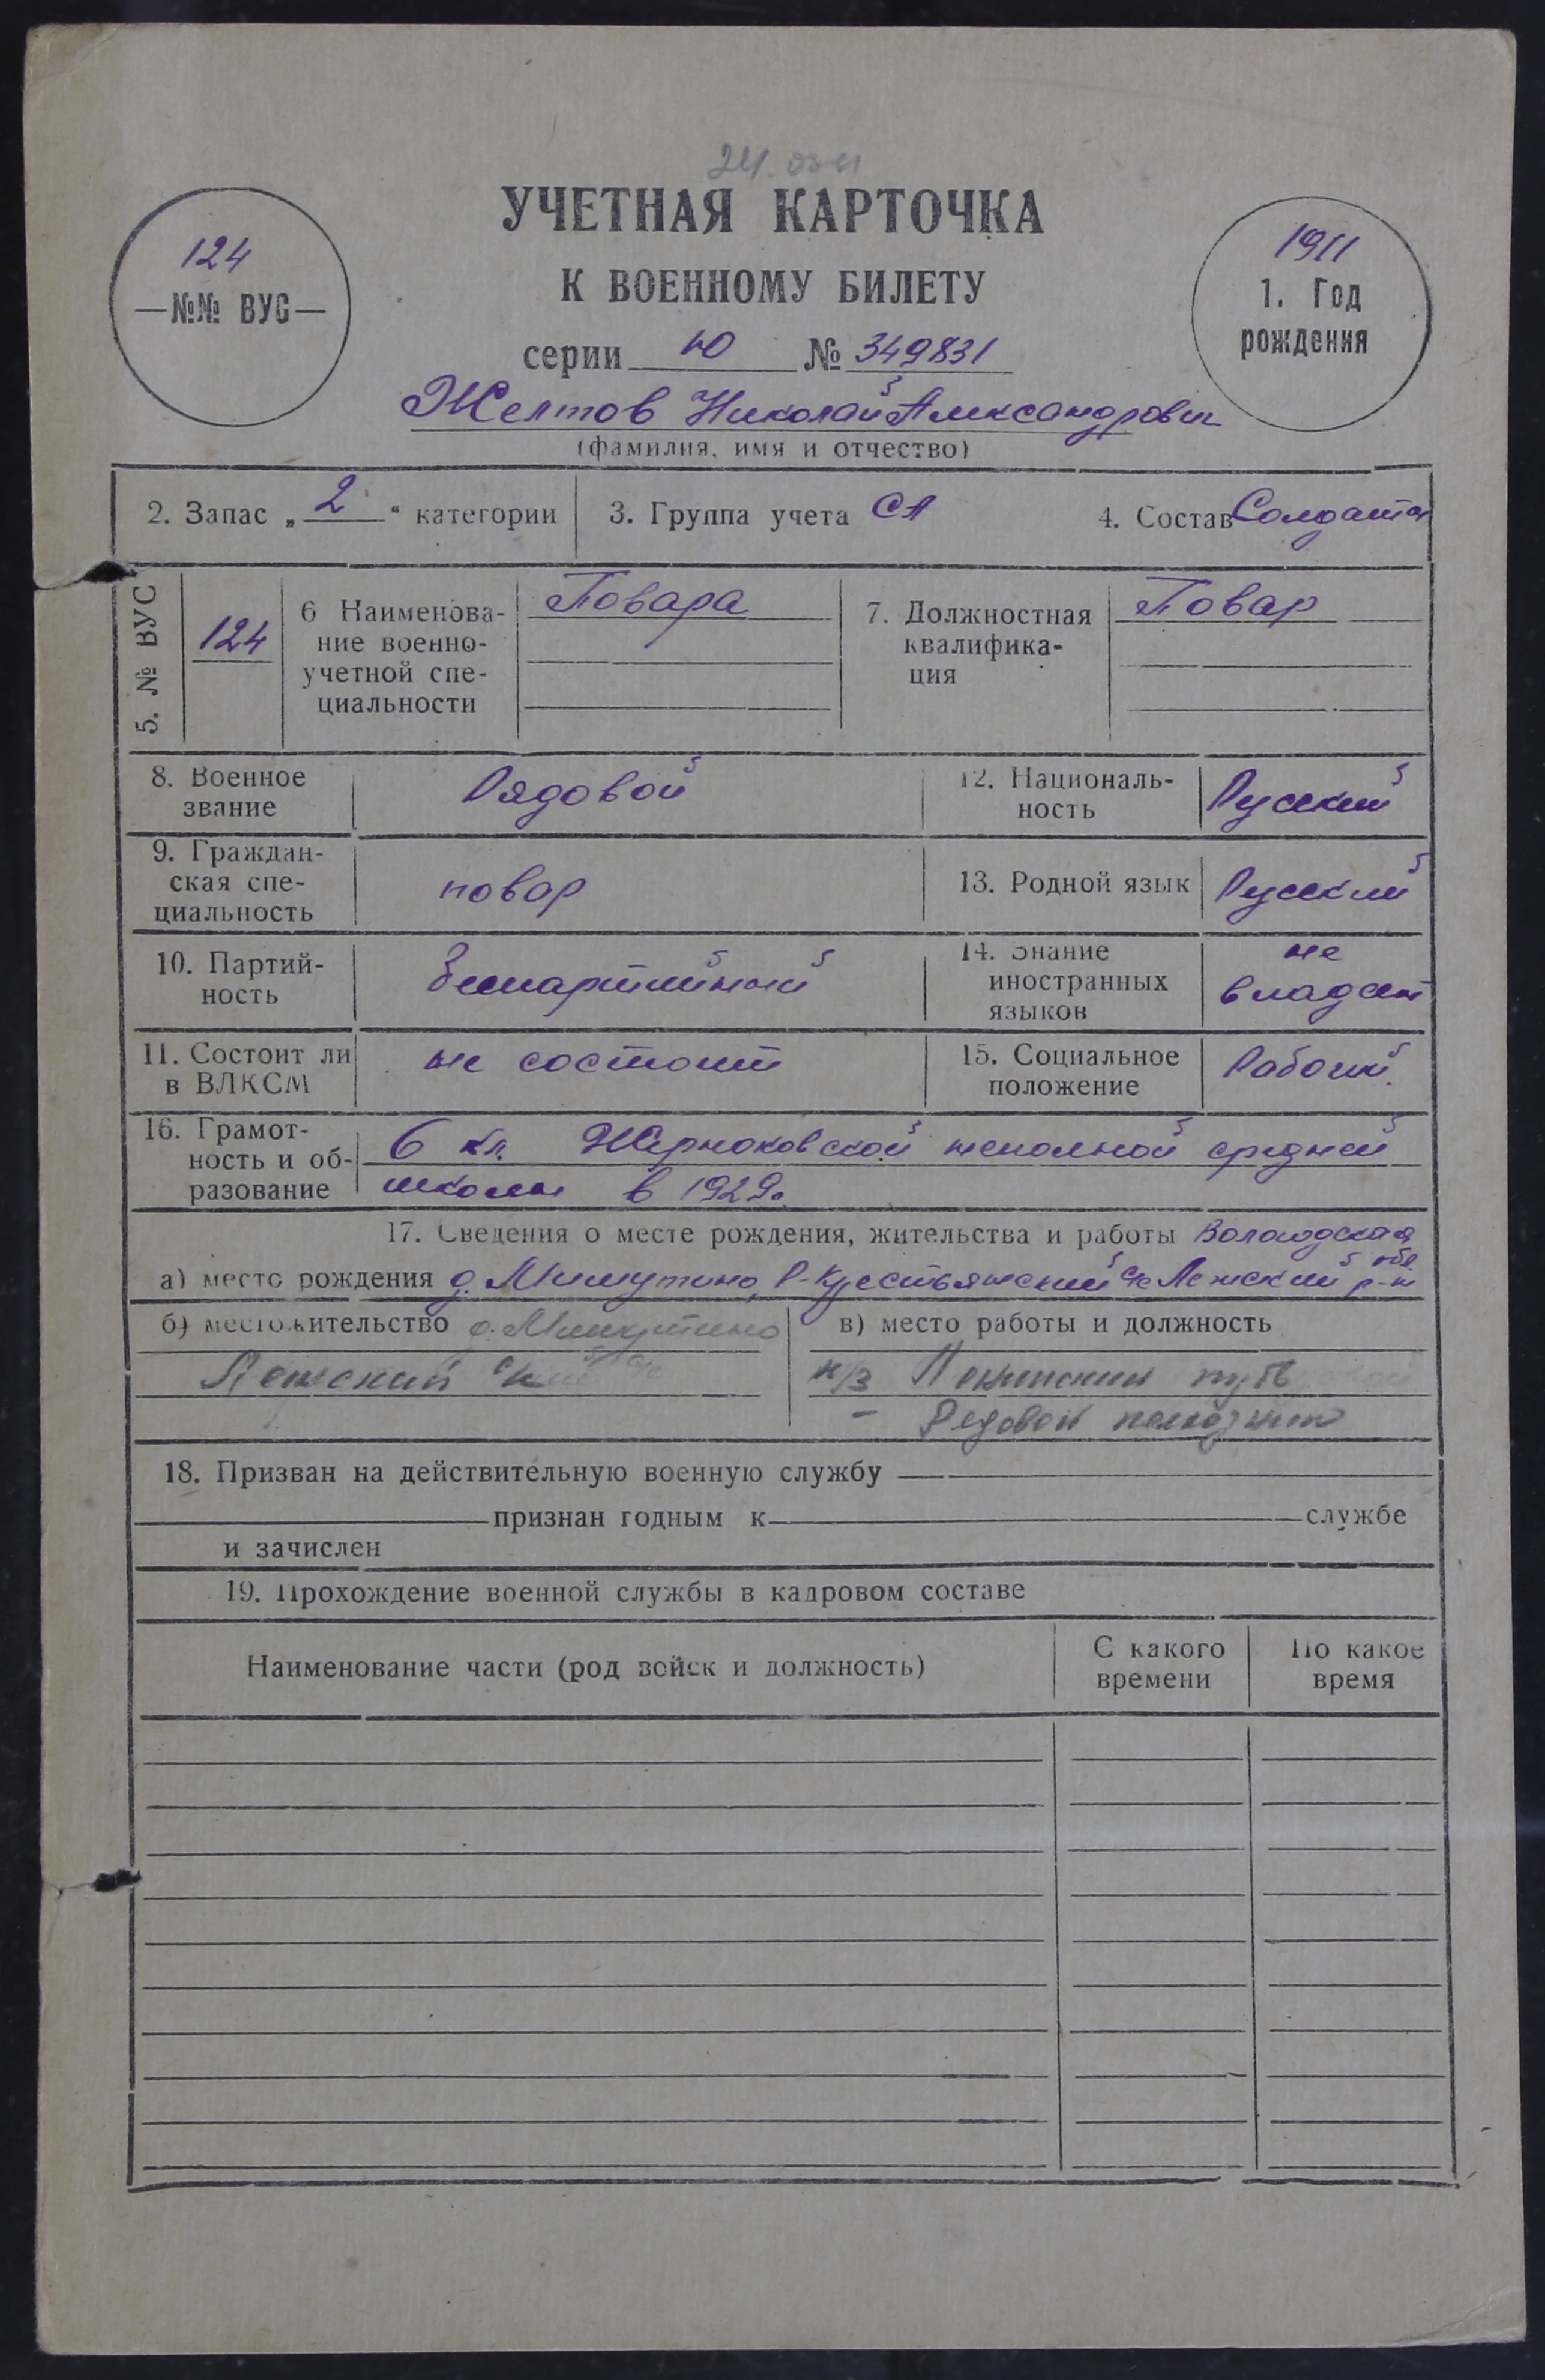 УЧЕТНАЯ КАРТОЧКА
К ВОЕННОМУ БИЛЕТУ
серии Ю № 349831
124
—№№ ВУС—
1911
1. Год
рождения
Желтов Николай Александрович
(фамилия, имя и отчество)
2. Запас „2“ категории
3. Группа учета СА
4. Состав Солдаты
5. № ВУС
124
6 Наименова-
ние военно-
учетной спе-
циальности
Повара
7. Должностная
квалифика-
ция
Повар
8. Военное
звание
Рядовой
12. Националь-
ность
Русский
9. Граждан-
ская спе-
циальность
повар
13. Родной язык
Русский
10. Партий-
ность
Беспартийный
14. Знание
иностранных
языков
не
владеет
11. Состоит ли
в ВЛКСМ
не состоит
15. Социальное
положение
Рабочий
16. Грамот-
ность и об-
разование
6 кл. неполной средней
школы в 1929г.
17. Сведения о месте рождения, жительства и работы Вологодская обл.
а) место рождения д. Мишутино, Р-Крестьянский с/с Лежский р-н
б) местожительство д. Мишутино
Лежский
в) место работы и должность
к/з путь
— Рядовой колхозник
18. Призван на действительную военную службу
признан годным к службе
и зачислен
19. Прохождение военной службы в кадровом составе
Наименование части (род войск и должность)
С какого
времени
По какое
время